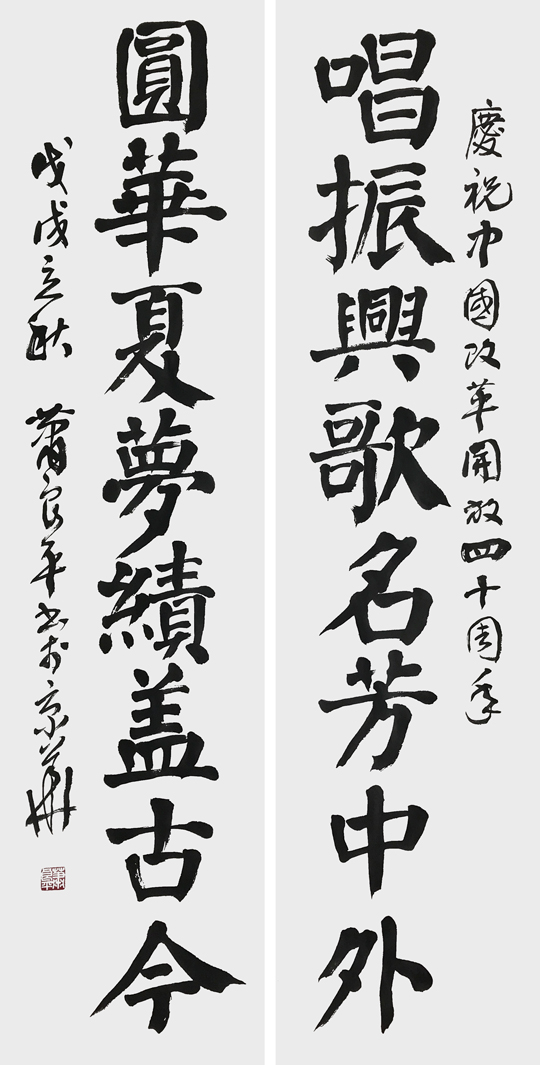 慶祝中國改革開放四十周年
唱振興歌名芳中外
圓華夏夢績盖古今
戊戌立秋 蕭良平书于京華